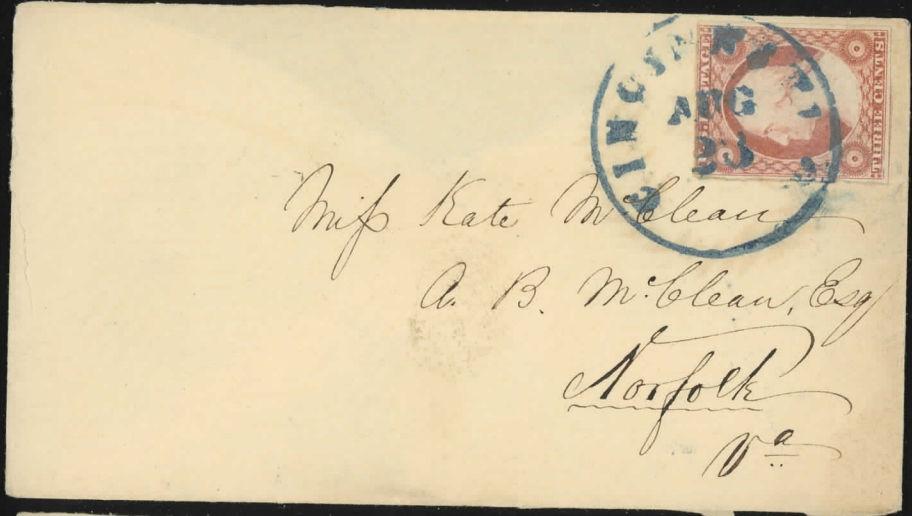 CINCINNATI O.
AUG
23
POSTAGE
THREE CENTS
Miſs Kate McClean
A. B. McClean, Esq
Norfolk
Va